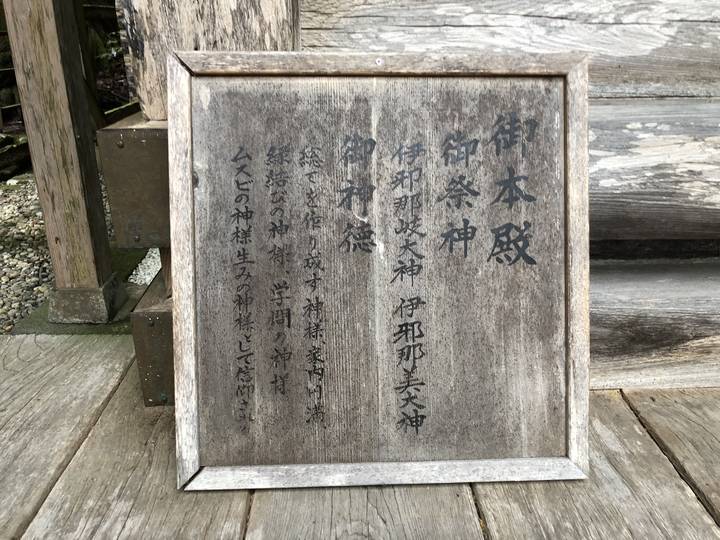 御本殿
御祭神
伊邪那岐大神 伊邪那美大神
御神徳
総てを作り成す神様、家内円満
縁結びの神様、学問の神様
ムスビの神様生みの神様として信仰され